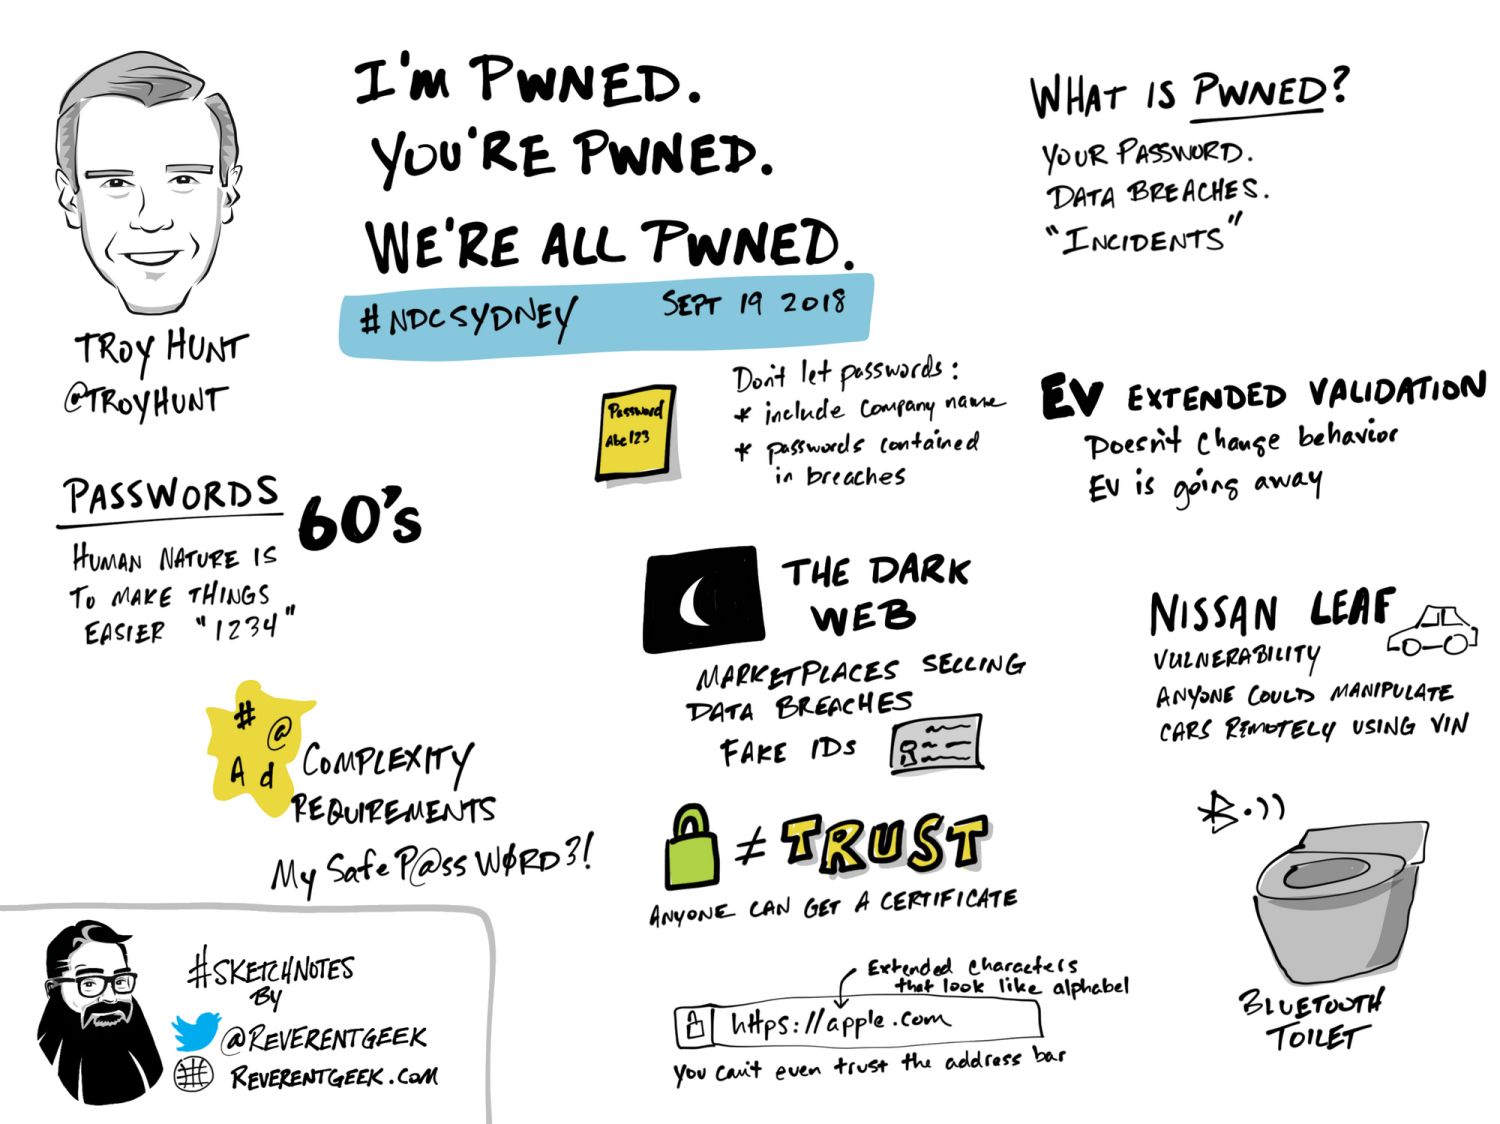 I'm PWNED.
YOU'RE PWNED.
WE'RE ALL PWNED.
#NDCSYDNEY SEPT 19 2018
TROY HUNT
@TROYHUNT
WHAT IS PWNED?
YOUR PASSWORD.
DATA BREACHES.
"INCIDENTS"
PASSWORDS 60's
HUMAN NATURE IS
TO MAKE THINGS
EASIER "1234"
# @
A d
COMPLEXITY
REQUIREMENTS
My Safe P@ssWØRD3!
Password
Abc123
Don't let passwords:
* include company name
* passwords contained
in breaches
THE DARK
WEB
MARKETPLACES SELLING
DATA BREACHES
FAKE IDs
≠ TRUST
ANYONE CAN GET A CERTIFICATE
Extended characters
that look like alphabel
https://apple.com
You can't even trust the address bar
EV EXTENDED VALIDATION
Doesn't change behavior
EV is going away
NISSAN LEAF
VULNERABILITY
ANYONE COULD MANIPULATE
CARS REMOTELY USING VIN
BLUETOOTH
TOILET
#SKETCHNOTES
BY
@REVERENTGEEK
REVERENTGEEK.COM